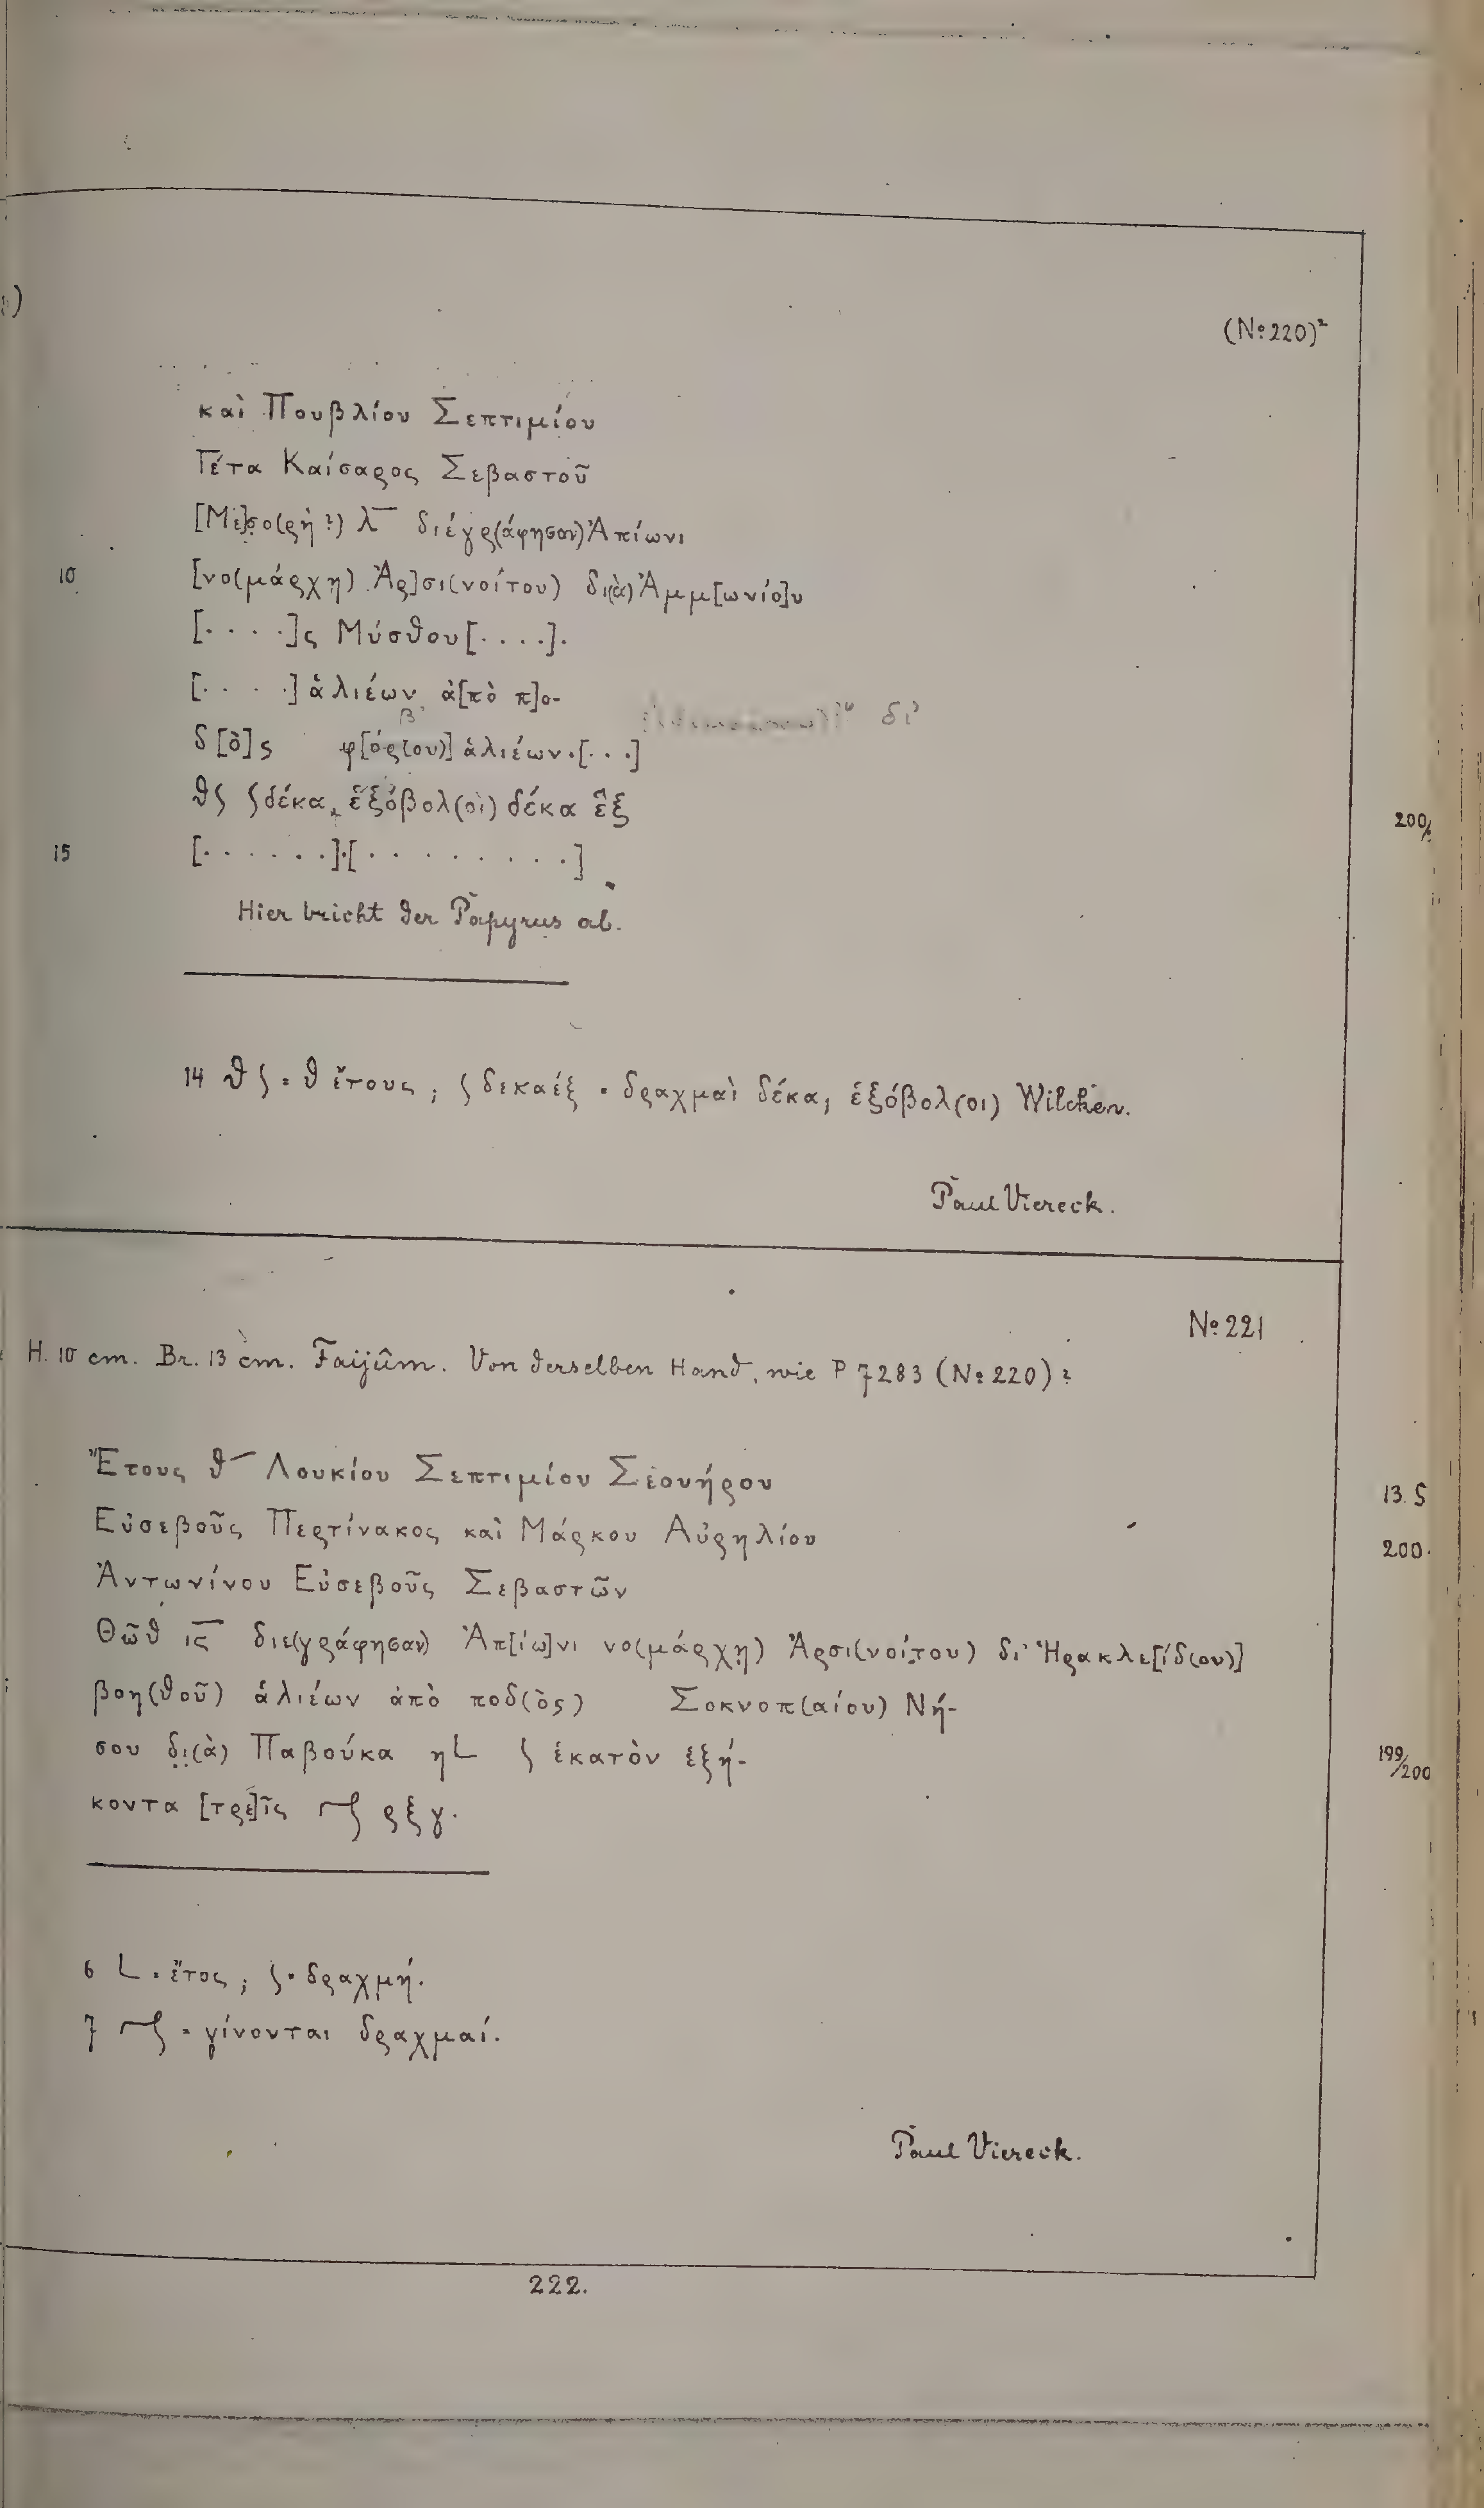 (№ 220)²
καὶ Πουβλίου Σεπτιμίου
Γέτα Καίσαρος Σεβαστοῦ
[Με]σο(ρὴ?) λ̅ διέγρ(άφησαν) Ἀπίωνι
10 [νο(μάρχῃ) Ἀρ]σι(νοίτου) δι(ὰ) Ἀμμ[ωνίο]υ
[. . . .]ς Μύσθου[. . . .].
[. . . .] ἁλιέων ἀ[πὸ π]ο-
δι'
β
δ[ὸ]ς φ[όρ(ου)] ἁλιέων.[. . .]
θʃ ʃδέκα, ἑξόβολ(οὶ) δέκα ἓξ
200/
15 [. . . . . .].[. . . . . . . . .]
Hier bricht der Papyrus ab.
14 θʃ = θ ἔτους; ʃ δεκαέξ = δραχμαὶ δέκα, ἑξόβολ(οι) Wilcken.
Paul Viereck.
№ 221
H. 10 cm. Br. 13 cm. Faijûm. Von derselben Hand, wie P 7283 (№ 220)?
Ἔτους θ̅ Λουκίου Σεπτιμίου Σεουήρου
13. S
Εὐσεβοῦς Περτίνακος καὶ Μάρκου Αὐρηλίου
200.
Ἀντωνίνου Εὐσεβοῦς Σεβαστῶν
Θῶθ ι̅ς̅ διε(γράφησαν) Ἀπ[ίω]νι νο(μάρχῃ) Ἀρσι(νοίτου) δι' Ἡρακλε[ίδ(ου)]
βοη(θοῦ) ἁλιέων ἀπὸ ποδ(ὸς) Σοκνοπ(αίου) Νή-
σου δι(ὰ) Παβούκα ηL ʃ ἑκατὸν ἑξή-
199/200
κοντα [τρε]ῖς /ʃ ρξγ.
6 L = ἔτος; ʃ = δραχμή.
7 /ʃ = γίνονται δραχμαί.
Paul Viereck.
222.